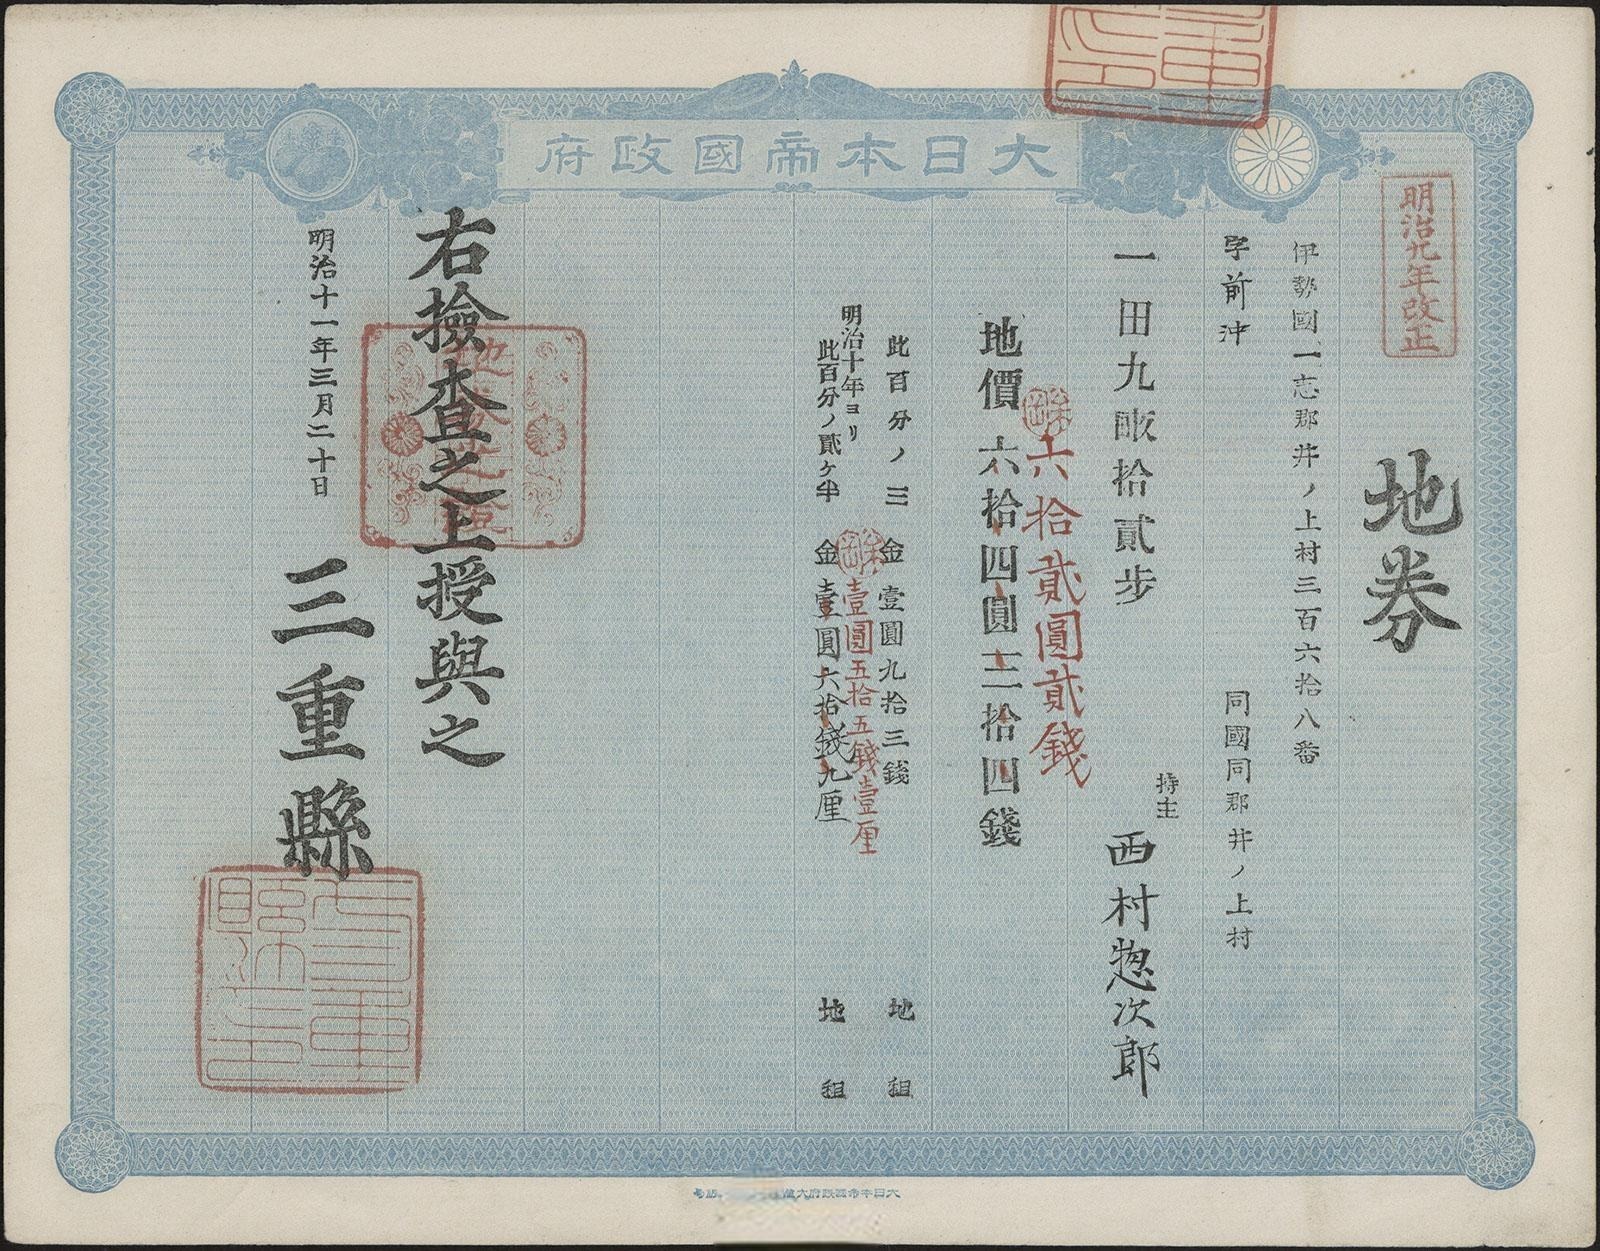 大日本帝國政府
明治九年改正
地券
伊勢國一志郡井ノ上村三百六拾八番
字前沖
同國同郡井ノ上村
一田九畝拾貳步
持主
西村惣次郎
六拾貳圓貳錢
地價六拾四圓三拾四錢
此百分ノ三金壹圓九拾三錢
地租
壹圓五拾五錢壹厘
明治十年ヨリ
此百分ノ貳ケ半金壹圓六拾錢九厘
地租
右撿査之上授與之
明治十一年三月二十日
三重縣